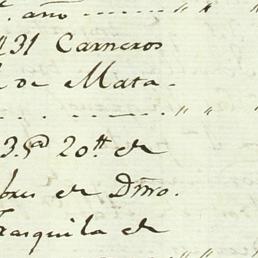 año " "
431 Carneros
de Mata-
" "
3.@ 20 tt de
bres de Dmo.
Trasquila de